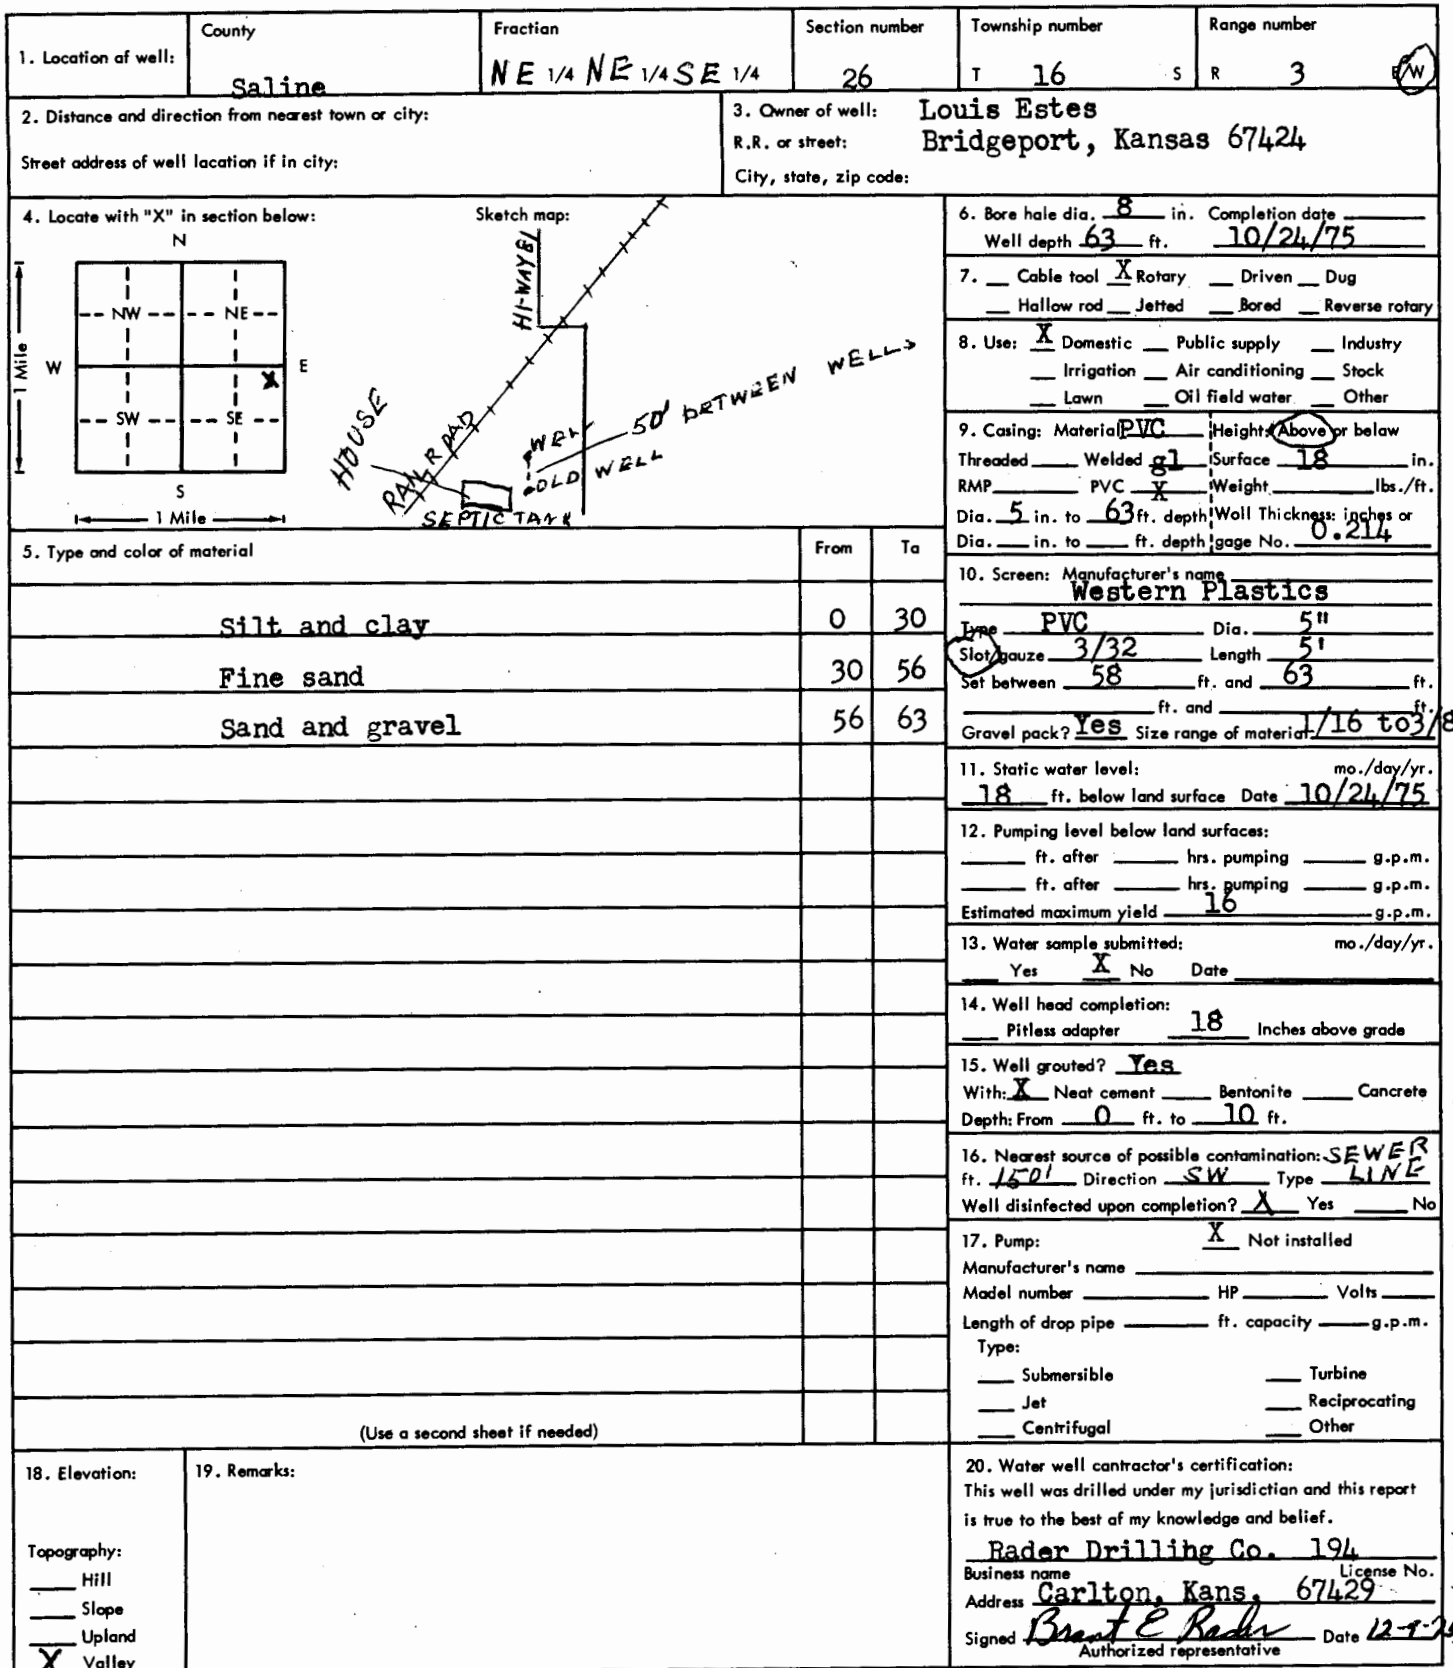 County Fraction Section number Township number Range number
1. Location of well: Saline NE 1/4 NE 1/4 SE 1/4 26 T 16 S R 3 E/W
2. Distance and direction from nearest town or city:
Street address of well location if in city:
3. Owner of well: Louis Estes
R.R. or street: Bridgeport, Kansas 67424
City, state, zip code:
4. Locate with "X" in section below: Sketch map:
N
NW NE
W X E
SW SE
S
1 Mile
1 Mile
HI-WAY 81
HOUSE
RAILROAD
WELL
50' BETWEEN WELL
OLD WELL
SEPTIC TANK
5. Type and color of material From To
Silt and clay 0 30
Fine sand 30 56
Sand and gravel 56 63
(Use a second sheet if needed)
6. Bore hole dia. 8 in. Completion date
Well depth 63 ft. 10/24/75
7. Cable tool X Rotary Driven Dug
Hollow rod Jetted Bored Reverse rotary
8. Use: X Domestic Public supply Industry
Irrigation Air conditioning Stock
Lawn Oil field water Other
9. Casing: Material PVC Height: Above or below
Threaded Welded gl Surface 18 in.
RMP PVC X Weight lbs./ft.
Dia. 5 in. to 63 ft. depth Wall Thickness: inches or
Dia. in. to ft. depth gage No. 0.214
10. Screen: Manufacturer's name
Western Plastics
Type PVC Dia. 5"
Slot/gauze 3/32 Length 5'
Set between 58 ft. and 63 ft.
ft. and ft.
Gravel pack? Yes Size range of material 1/16 to3/8
11. Static water level: mo./day/yr.
18 ft. below land surface Date 10/24/75
12. Pumping level below land surfaces:
ft. after hrs. pumping g.p.m.
ft. after hrs. pumping g.p.m.
Estimated maximum yield 16 g.p.m.
13. Water sample submitted: mo./day/yr.
Yes X No Date
14. Well head completion:
Pitless adapter 18 Inches above grade
15. Well grouted? Yes
With: X Neat cement Bentonite Concrete
Depth: From 0 ft. to 10 ft.
16. Nearest source of possible contamination: SEWER
ft. 150' Direction SW Type LINE
Well disinfected upon completion? X Yes No
17. Pump: X Not installed
Manufacturer's name
Model number HP Volts
Length of drop pipe ft. capacity g.p.m.
Type:
Submersible Turbine
Jet Reciprocating
Centrifugal Other
18. Elevation:
Topography:
Hill
Slope
Upland
X Valley
19. Remarks:
20. Water well contractor's certification:
This well was drilled under my jurisdiction and this report
is true to the best of my knowledge and belief.
Rader Drilling Co. 194
Business name License No.
Address Carlton, Kans. 67429
Signed Brant E Rader Date 12-9-75
Authorized representative